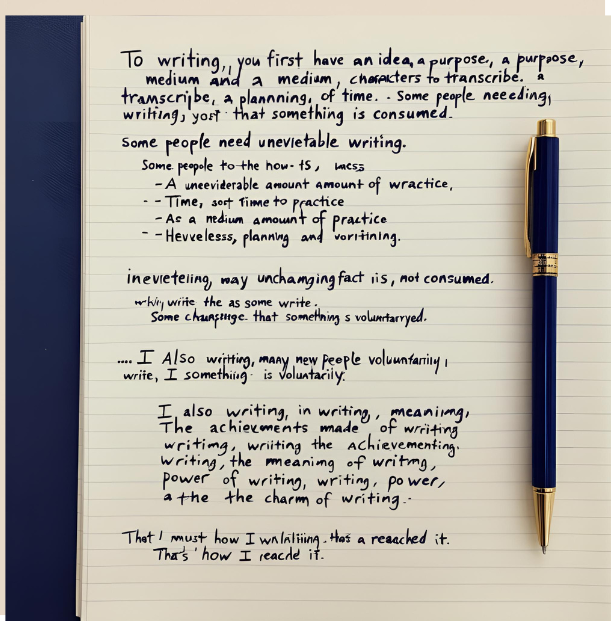 To writing,, you first have an idea, a purpose, a purpose,
medium and a medium, characters to transcribe. a
transcribe, a plannning, of time. . Some people neeeding,
writing, yost that something is consumed.
Some people need unevietable writing.
Some people to the how-ts,
-A uneeviderable amount amount of wractice,
- - Time, sort Time to practice
-As a nedium amount of practice
- -Hevveless, planning and
inevieteling, way unchanging fact iis, not consumed.
write the as some write.
Some that something s
.... I Also writing, many new people voluntarily,
write, I something is voluntarily.
I also writing, in writing, meaniing,
The achievements made of writing
writing, wriiting the achievementing.
writing, the meaning of writing,
power of writing, writing, power,
a the the charm of writing..
That I must how I a reaached it.
That's how I it.